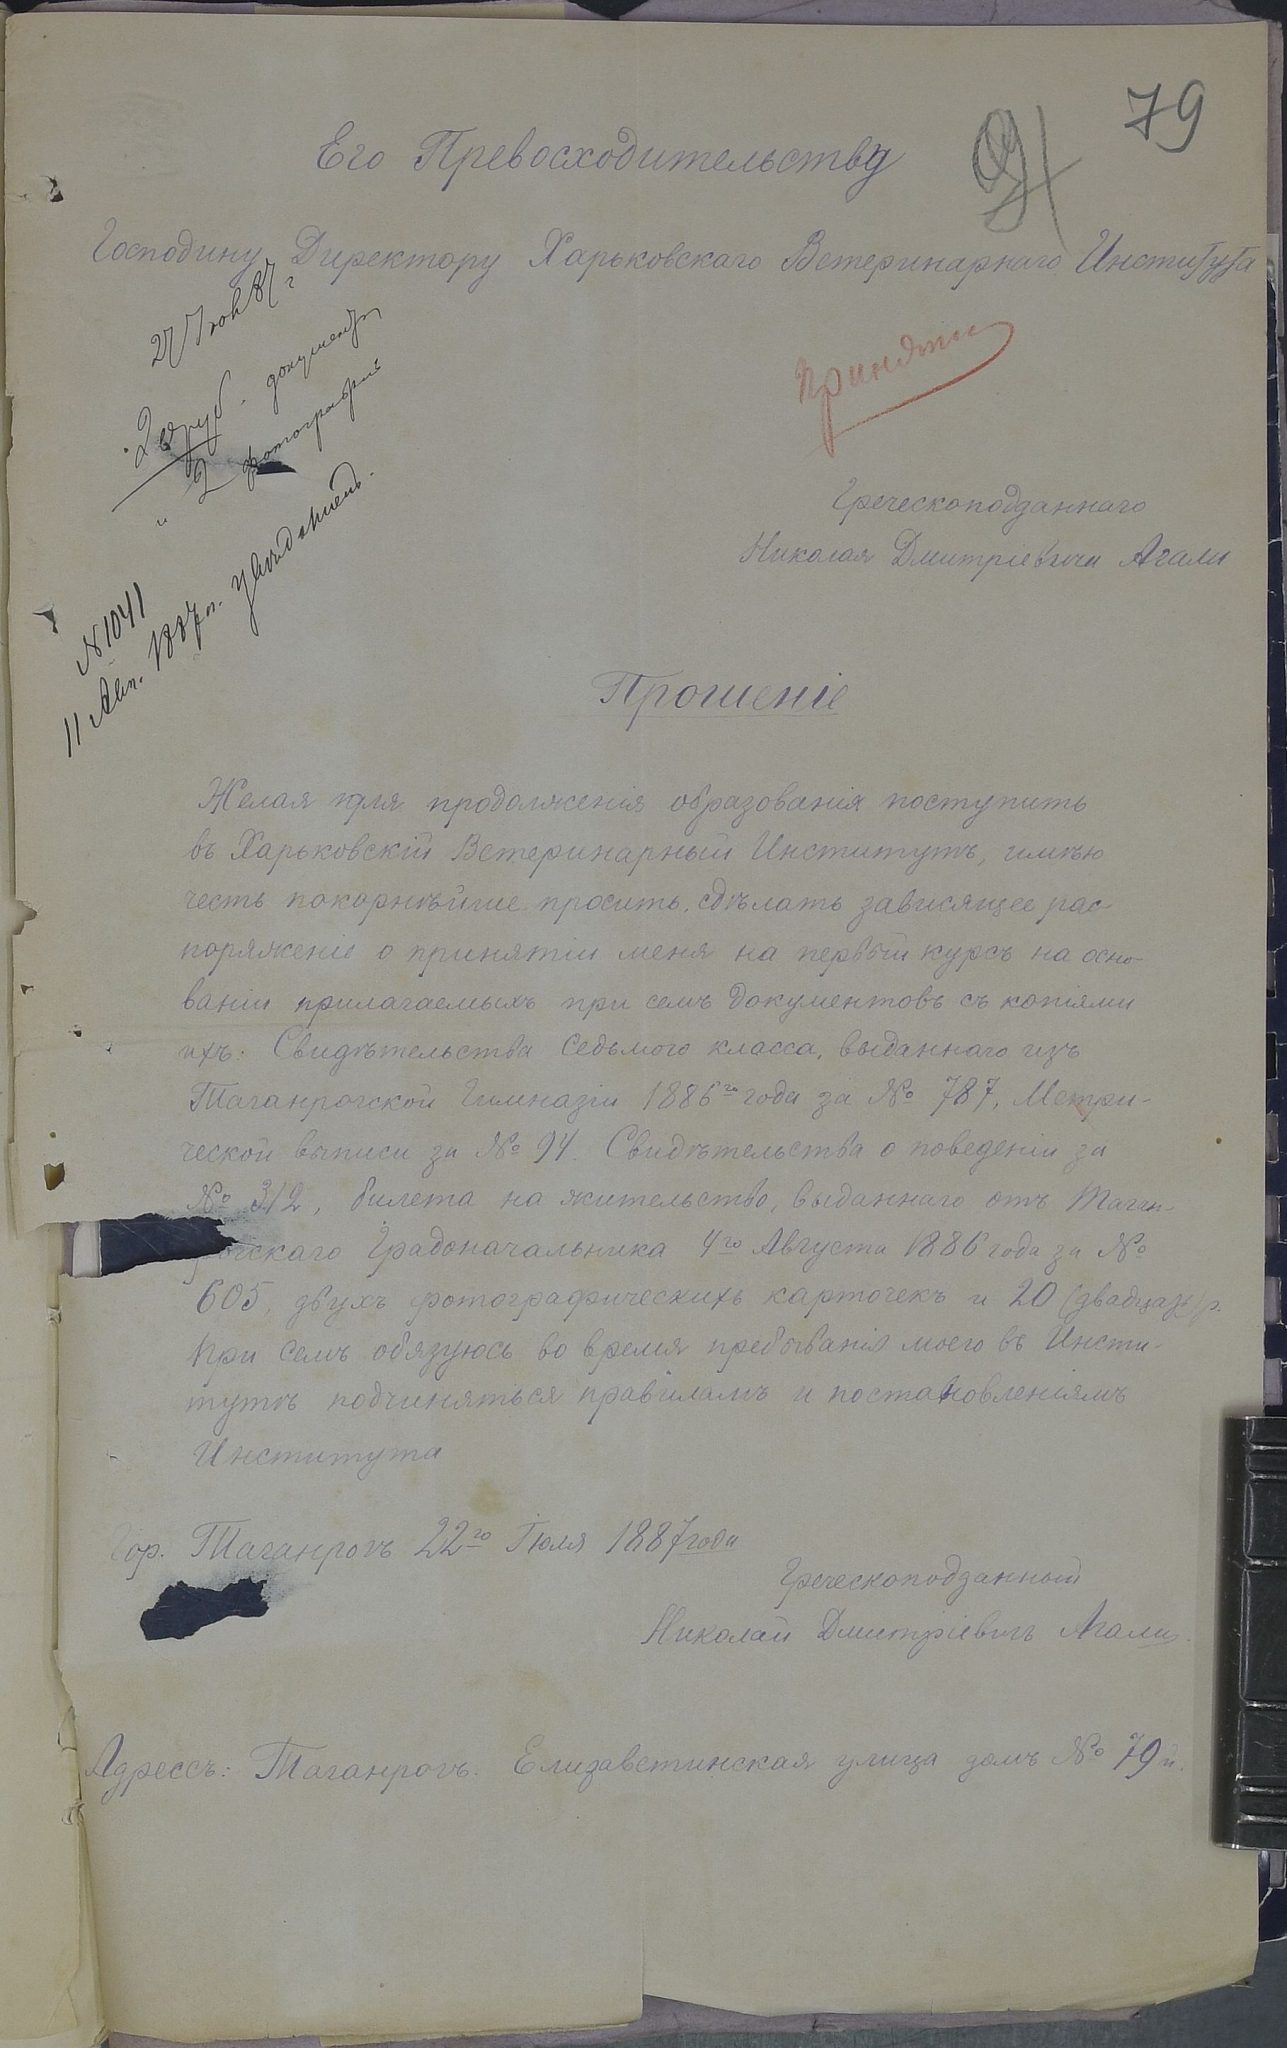 79
91
Его Превосходительству
Господину Директору Харьковскаго Ветеринарнаго Института
27 Июл 87 г
20 руб. документы
и 2 фотографіи
№ 1041
11 Авг. 1887 г. уведомленъ.
Принять
Греческоподданнаго
Николая Дмитріевича Агали
Прошеніе
Желая для продолженія образованія поступить
въ Харьковскій Ветеринарный Институтъ, имѣю
честь покорнѣйше просить сдѣлать зависящее рас-
поряженіе о принятіи меня на первый курсъ на осно-
ваніи прилагаемыхъ при семъ документовъ съ копіями
ихъ: Свидѣтельства седьмого класса, выданнаго изъ
Таганрогской Гимназіи 1886го года за № 787, Метри-
ческой выписи за № 94. Свидѣтельства о поведеніи за
№ 312, билета на жительство, выданнаго отъ Таган-
рогскаго Градоначальника 4го Августа 1886 года за №
605, двухъ фотографическихъ карточекъ и 20 (двадцать) р.
При семъ обязуюсь во время пребыванія моего въ Инсти-
тутѣ подчиняться правиламъ и постановленіямъ
Института
Гор. Таганрогъ 22го Іюля 1887 года
Греческоподданный
Николай Дмитріевичъ Агали.
Адрессъ: Таганрогъ. Елизаветинская улица домъ № 79й.